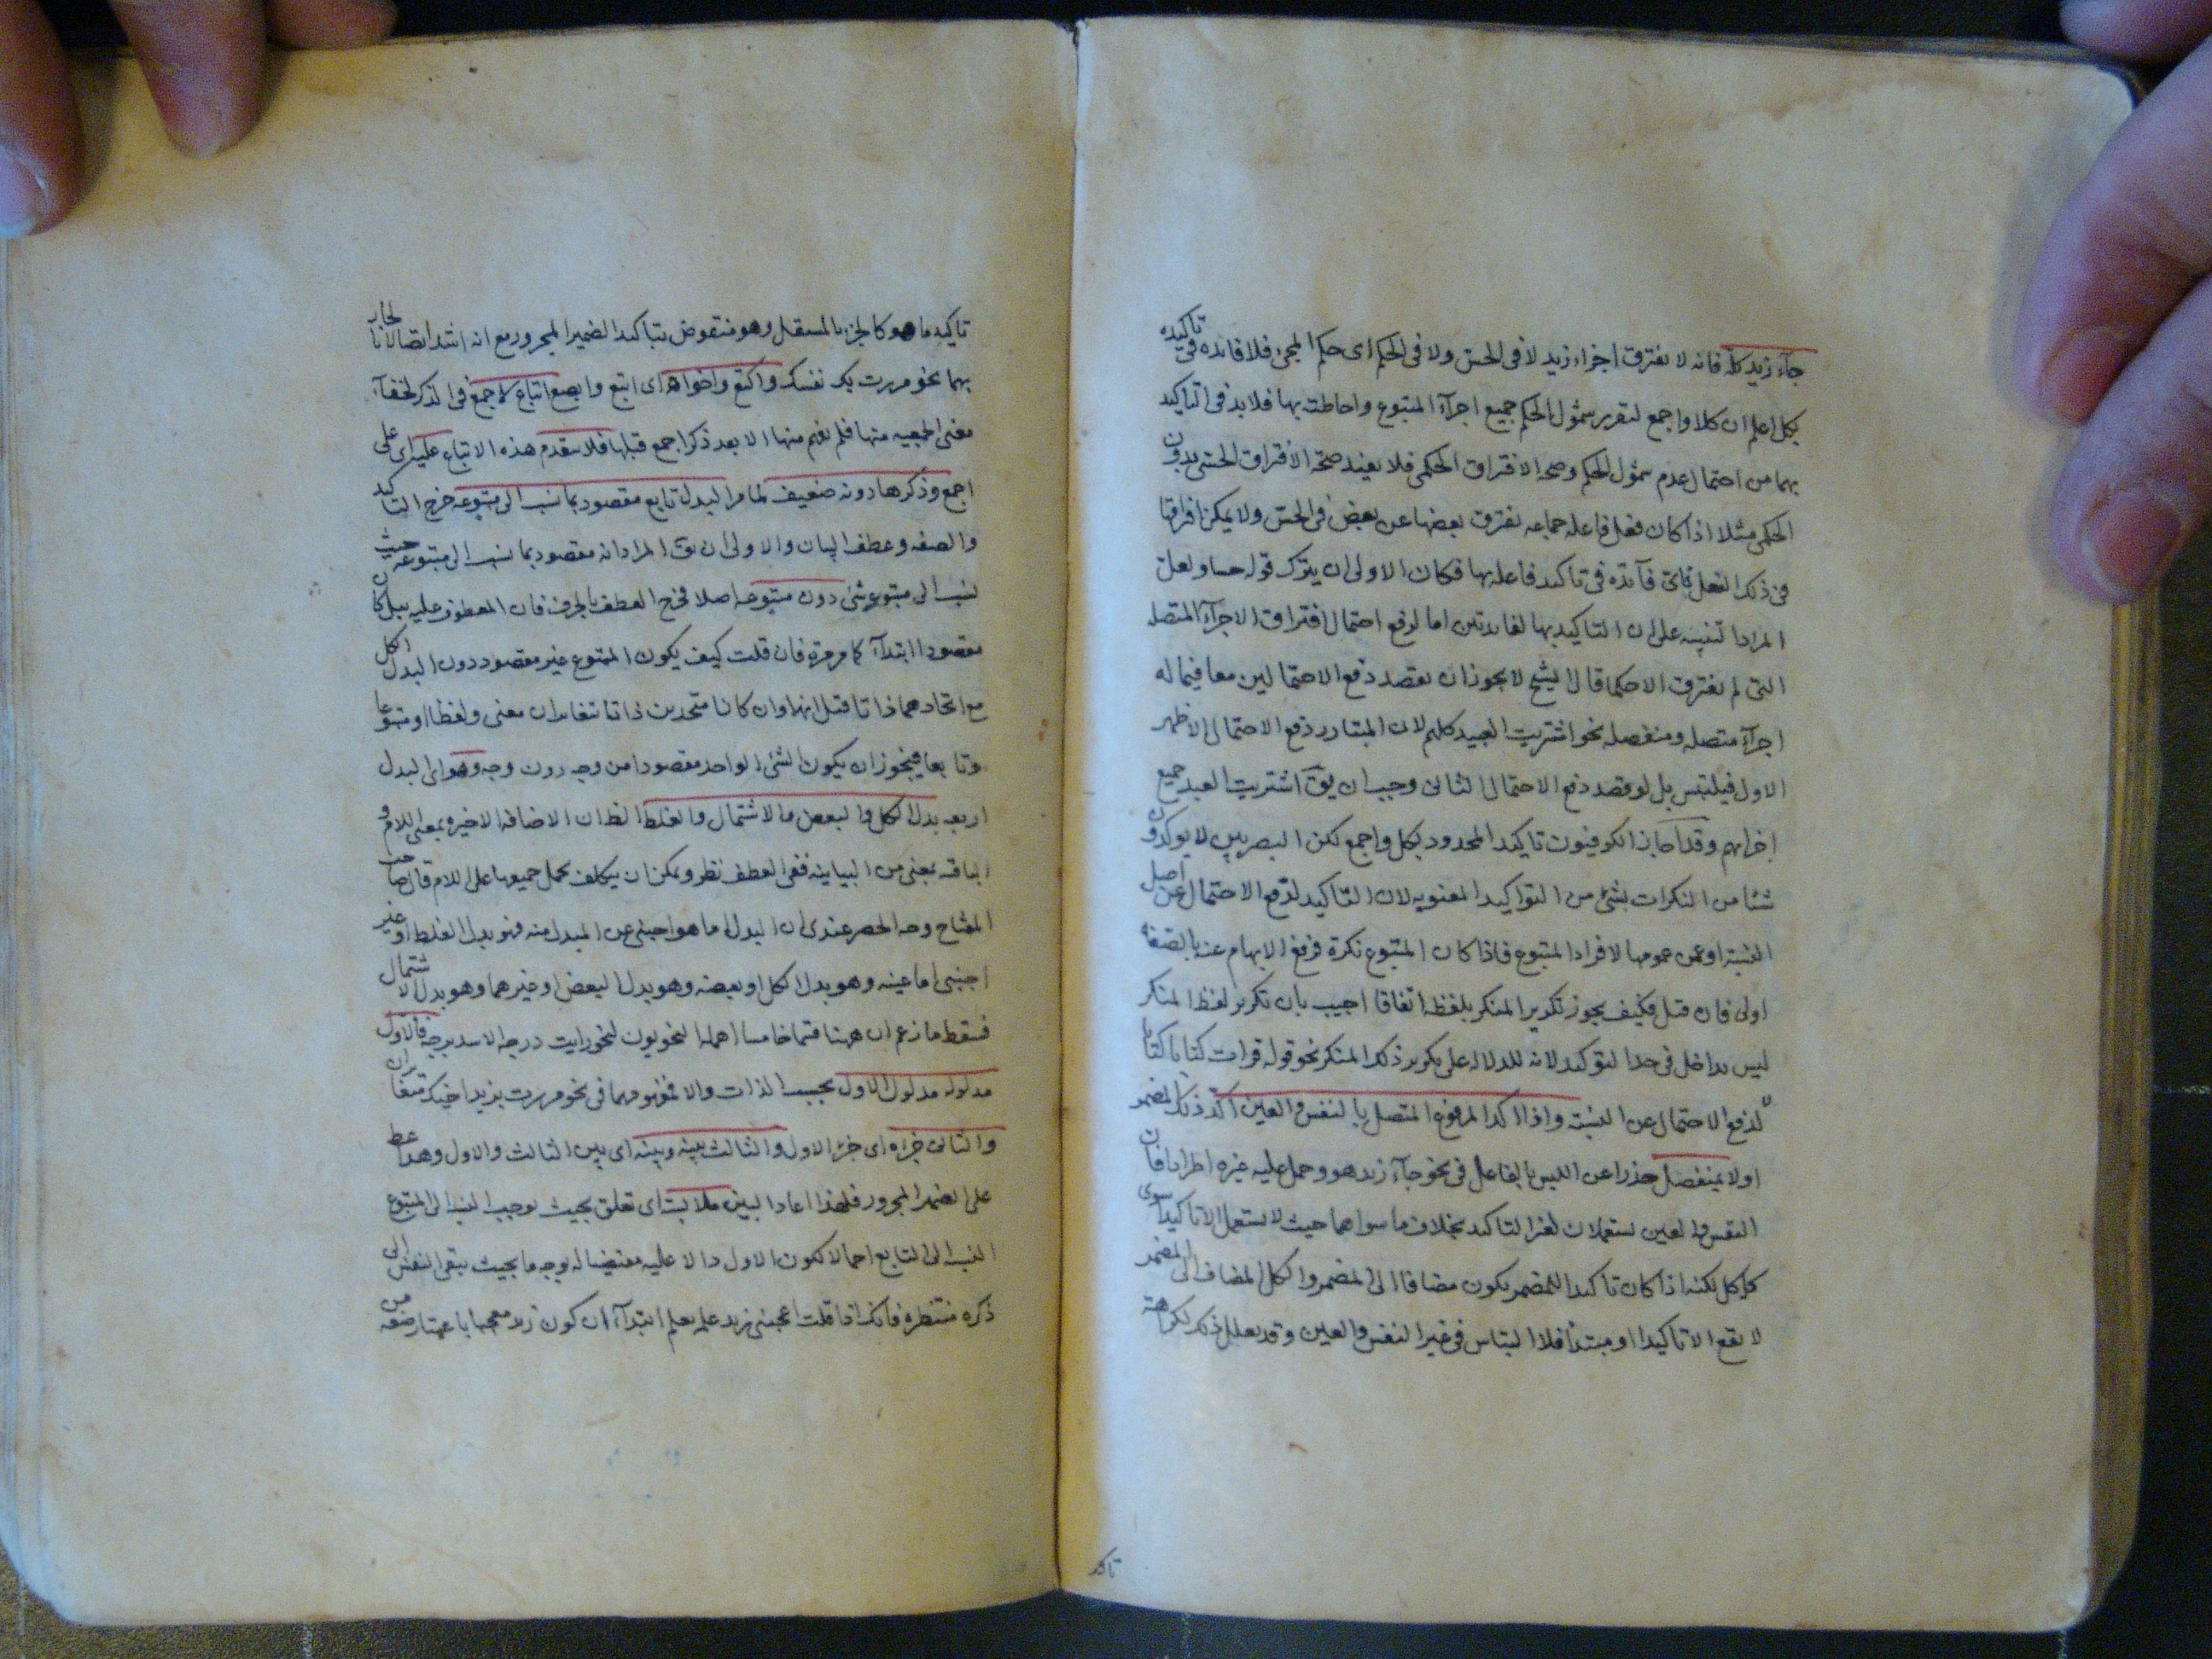 جاء زيد كله فانه لا يفترق اجزاء زيد لا فى الحس ولا فى الحكم اى حكم المجئ فلا فائده فى تاكيده
بكل اعلم ان كلا واجمع لتقرير شمول الحكم جميع اجزآء المتبوع واحاطته بها فلا بد فى التاكيد
بهما من احتمال عدم شمول الحكم وصحه الافتراق الحكمى فلا يفيد صحة الافتراق الحسى بدون
الحكمى مثلا اذا كان فعل فاعله جماعه يفترق بعضها عن بعض فى الحس ولا يمكن افتراقها
فى ذلك الفعل فاى فآئدة فى تاكيد فاعله بها فكان الاولى ان يترك قوله حسا ولعل
المراد التنبيه على ان التاكيد بها لفائدتين اما لدفع احتمال افتراق الاجزآء المتصله
التى لم يفترق الا حكما قال الشيخ لا يجوز ان يقصد دفع الاحتمالين معا فيما له
اجزآء متصله ومنفصله نحو اشتريت العبيد كلهم لان المتبادر دفع الاحتمال الاظهر
الاول فيلتبس بل لو قصد دفع الاحتمال الثانى وجب ان يق اشتريت العبيد جميع
اجزائهم وقد اجاز الكوفيون تاكيد المحدود بكل واجمع لكن البصريين لا يوكدون
شئا من النكرات بشئ من التواكيد المعنويه لان التاكيد لدفع الاحتمال عن اصل
النسبة او عن عمومها لافراد المتبوع فاذا كان المتبوع نكرة فرفع الابهام عنه بالصفة
اولى فان قيل فكيف يجوز تكرير المنكر بلفظه اتفاقا اجيب بان تكرير لفظ المنكر
ليس بداخل فى حد التوكيد لانه للدلاله على تكرير ذلك المنكر نحو قوله قرات كتابا كتابا
لا لدفع الاحتمال عن النسبة واذا اكد المرفوع المتصل بالنفس والعين اكد ذلك المضمر
اولا بمنفصل حذرا عن اللبس بالفاعل فى نحو جآء زيد هو وحمل عليه غيره اطرادا فان
النفس والعين يستعملان لغير التاكيد بخلاف ما سواهما حيث لا يستعمل الا تاكيدا سوى
كل كل لكنه اذا كان تاكيد المضمر يكون مضافا الى المضمر وا كل المضاف الى المضمر
لا يقع الا تاكيدا او مبتدأ فلا التباس فى غير النفس والعين وقد يعلل ذلك بكراهة
تاكيد
تاكيد ما هو كالجزء بالمستقل وهو منقوض بتاكيد الضمير المجرور مع انه اشد اتصالا بالجار
بهما نحو مررت بك نفسك واكتع واخواه اى ابتع وابصع اتباع لاجمع فى الذكر لخفآء
معنى الجمعيه منها فلم يفهم منها الا بعد ذكر اجمع قبلها فلا يتقدم هذه الاتباع عليه اى على
اجمع وذكرها دونه ضعيف لما مر البدل تابع مقصود بما نسب الى متبوعه خرج التاكيد
والصفه وعطف البيان والاولى ان يق المراد انه مقصود بما نسب الى متبوعه حيث
نسب الى متبوع شئ دون متبوعه اصلا فخرج العطف بالحرف فان المعطوف عليه ببل كان
مقصودا ابتدآء كما مر مرة فان قلت كيف يكون المتبوع غير مقصود دون البدل الكل
مع اتحادهما ذاتا قيل انهما وان كانا متحدين ذاتا يتغايران معنى ولفظا او متبوعا
وتابعا فيجوز ان يكون الشئ الواحد مقصودا من وجه دون وجه وهو اى البدل
اربعه بدل الكل والبعض والاشتمال والغلط الظ ان الاضافه الاخيره بمعنى اللام و
الباقيه بمعنى من البيانيه ففى العطف نظر ويمكن ان يتكلف بحمل جميعها على اللام قال صاحب
المفتاح وجه الحصر عندى ان البدل اما هو اجنبى عن المبدل منه فهو بدل الغلط او غير
اجنبى اما عينه وهو بدل الكل او بعضه وهو بدل البعض او غيرهما وهو بدل الاشتمال
فسقط ما زعم ان ههنا قسما خامسا اهمله النحويون نحو رايت درجه الاسد برجه فالاول
مدلوله مدلول الاول بحسب الذات والا فمفهومهما فى نحو مررت بزيد اخيك متغايران
والثانى جزءه اى جزء الاول والثالث بينه وبينه اى بين الثالث والاول وهذا عطف
على الضمير المجرور فلهذا اعاد البين ملابسة اى تعلق بحيث يوجب النسبه الى المتبوع
النسبه الى التابع اجمالا لكون الاول دالا عليه مقتضيا له بوجه ما بحيث يبقى النفس الى
ذكره منتظره فانك اذا قلت اعجبنى زيد علمه يعلم ابتدآء ان كون زيد معجبا باعتبار صفه من